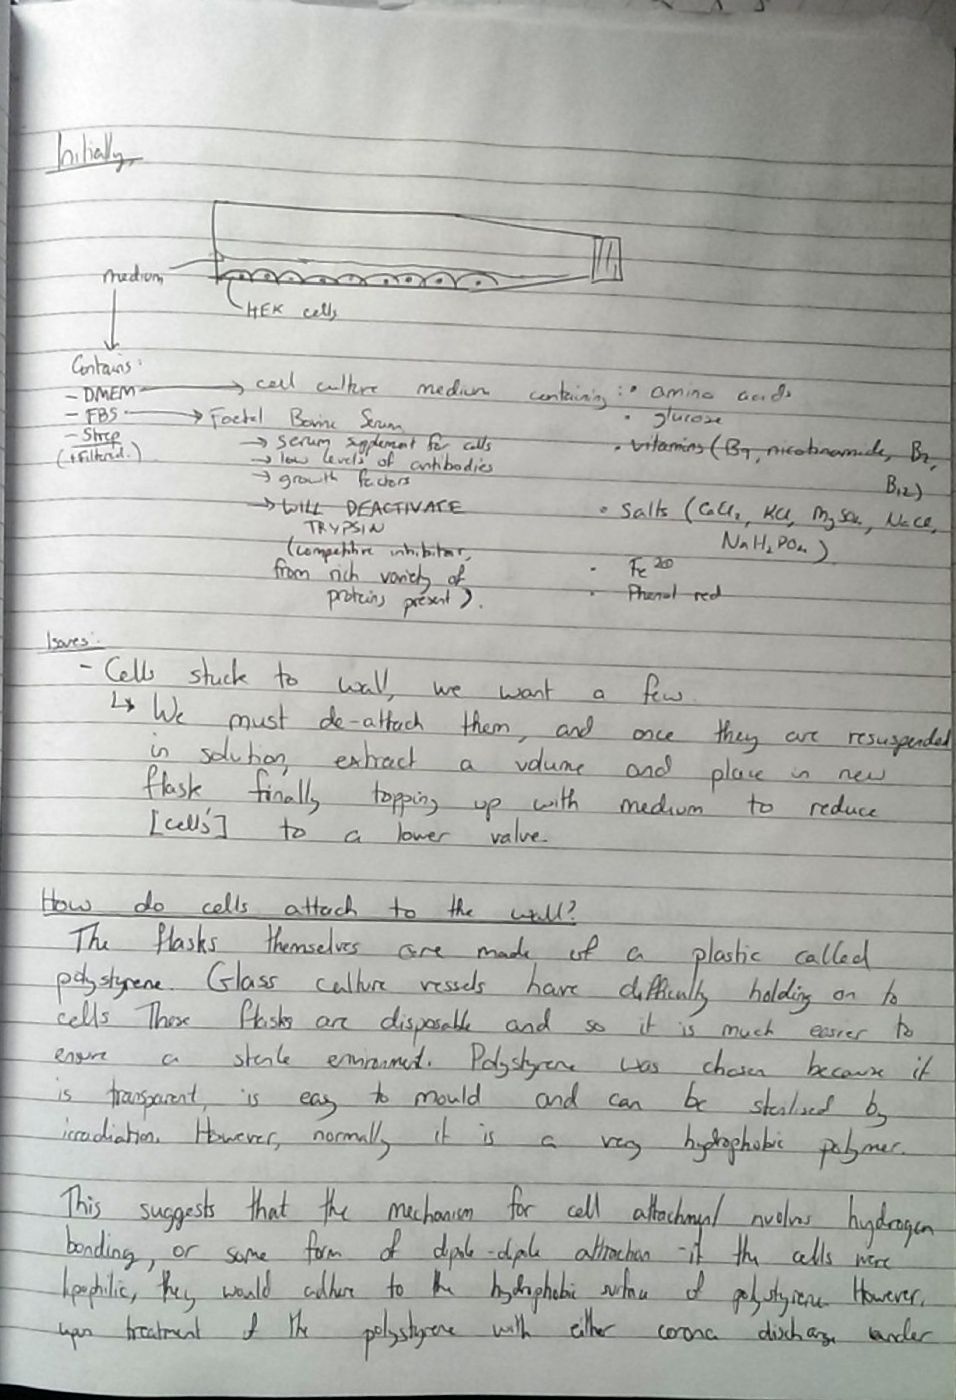 Initially,
medium
HEK cells
Contains:
- DMEM → cell culture medium containing : • amino acids
- FBS → Foetal Bovine Serum • glucose
- Strep → serum supplement for cells • vitamins (B9, nicotinamide, B2,
(+Filtered.) → low levels of antibodies B12)
→ growth factors
→ WILL DEACTIVATE • Salts (CaCl2, KCl, MgSO4, NaCl,
TRYPSIN NaH2PO4)
(competitive inhibitor,
from rich variety of • Fe
proteins present). • Phenol red
Issues:
- Cells stuck to wall, we want a few.
↳ We must de-attach them, and once they are resuspended
in solution, extract a volume and place in new
flask finally topping up with medium to reduce
[cells] to a lower value.
How do cells attach to the wall?
The flasks themselves are made of a plastic called
polystyrene. Glass culture vessels have difficulty holding on to
cells These flasks are disposable and so it is much easier to
ensure a sterile environment. Polystyrene was chosen because it
is transparent, is easy to mould and can be sterilised by
irradiation. However, normally it is a very hydrophobic polymer.
This suggests that the mechanism for cell attachment involves hydrogen
bonding, or some form of dipole-dipole attraction - if the cells were
lipophilic, they would adhere to the hydrophobic surface of polystyrene. However,
upon treatment of the polystyrene with either corona discharge under